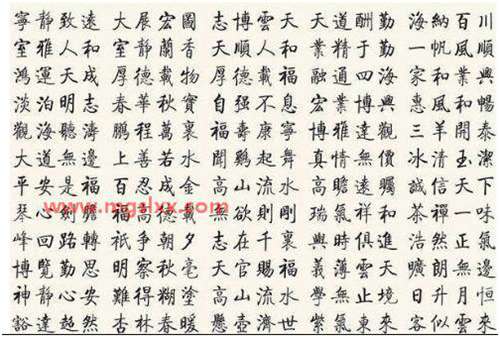 寧靜致遠 大展宏圖 志博雲天 天道酬勤 海納百川
室雅人和 室靜蘭香 順人和 業精于勤 一帆風順
鴻運天成 厚德載物 厚德載福 融通四海 家和業興
淡泊明志 春華秋實 自强不息 宏業博興 惠風和暢
觀海聽濤 鵬程萬裏 福壽康寧 博雅達觀 三羊開泰
大道無邊 上善若水 聞鷄起舞 真情無價 冰清玉潔
平安是福 百忍成金 高山流水 高瞻遠矚 誠信天下
琴心劍膽 無欲則剛 瑞氣祥和 茶禪一味
峰回路轉 祇争朝夕 志在千裏 與時俱進 浩然正氣
博覽勤思 明察秋毫 天官賜福 義薄雲天 曠朗無邊
神静心安 難得糊塗 高山流水 學無止境 日升月恒
豁達超然 杏林春暖 懸壺濟世 紫氣東來 客似雲來